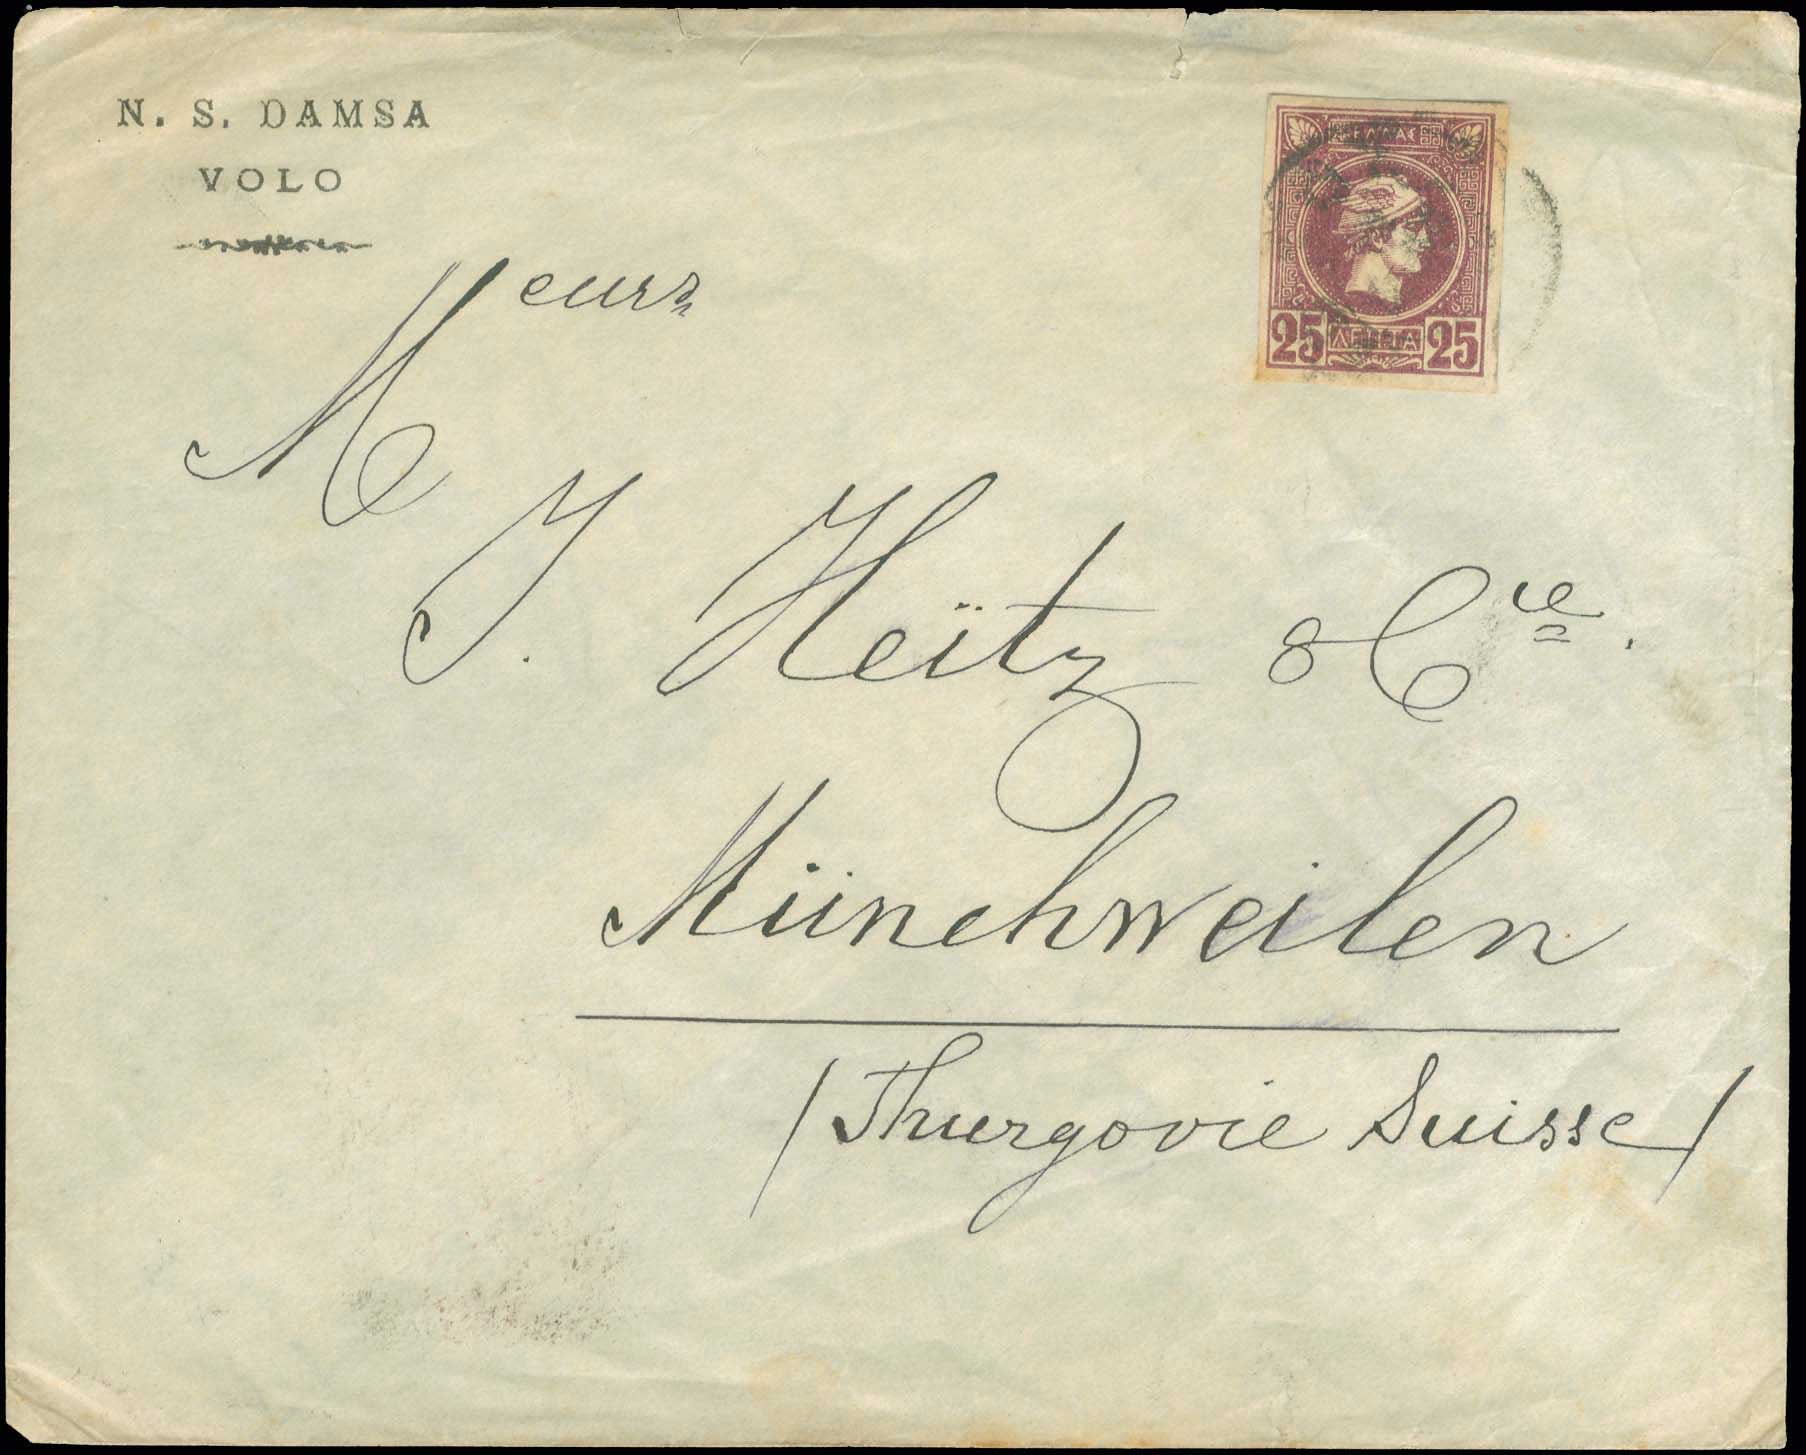 N. S. DAMSA
VOLO
ΕΛΛΑΣ
25 ΛΕΠΤΑ 25
Meurs
J. Heïtz & Cie.
Münchweilen
(Thurgovie Suisse)